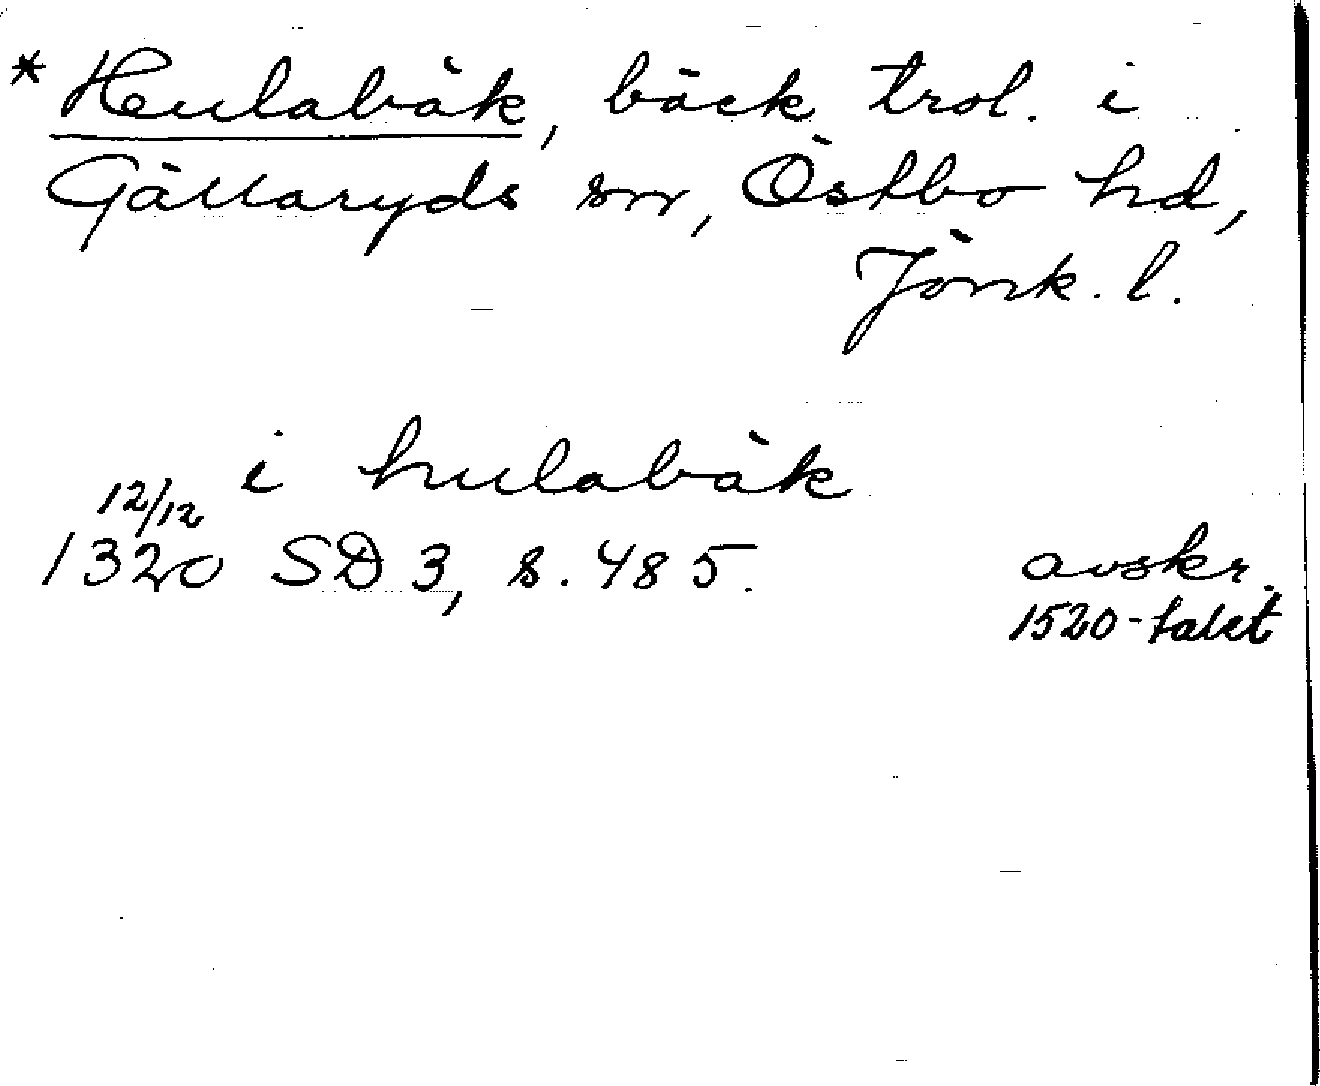 * Hulabäk, bäck trol. i
Gällaryds sn, Östbo hd,
Jönk. l.
i hulabäk
12/12
1320 SD 3, s. 485.
avskr.
1520-talet